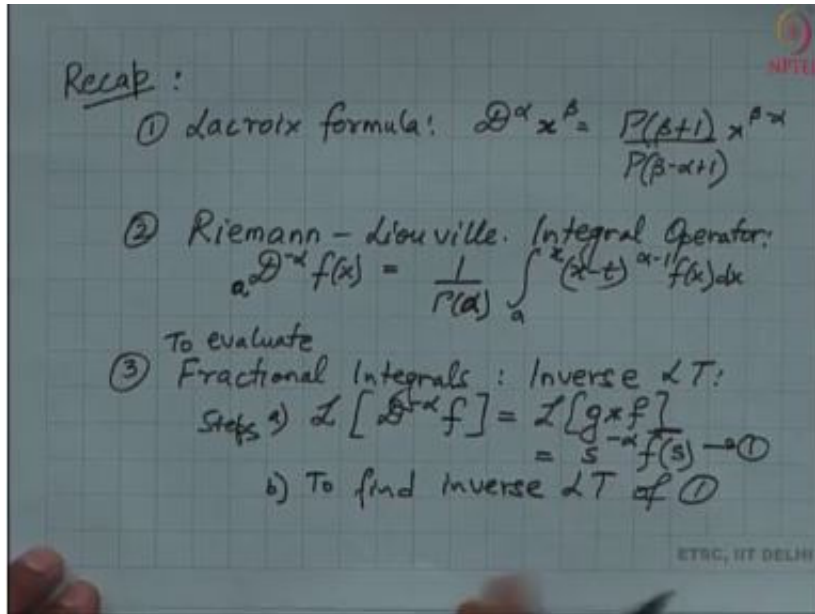 NPTEL
Recap :
① Lacroix formula: D^α x^β = Γ(β+1) / Γ(β-α+1) x^(β-α)
② Riemann - Liouville. Integral Operator:
ₐD^-α f(x) = 1/Γ(α) ∫ₐ^x (x-t)^(α-1) f(x)dx
To evaluate
③ Fractional Integrals : Inverse LT:
Steps a) L[D^-α f] = L[g*f]
= s^-α f(s) → ①
b) To find inverse LT of ①
ETSC, IIT DELHI